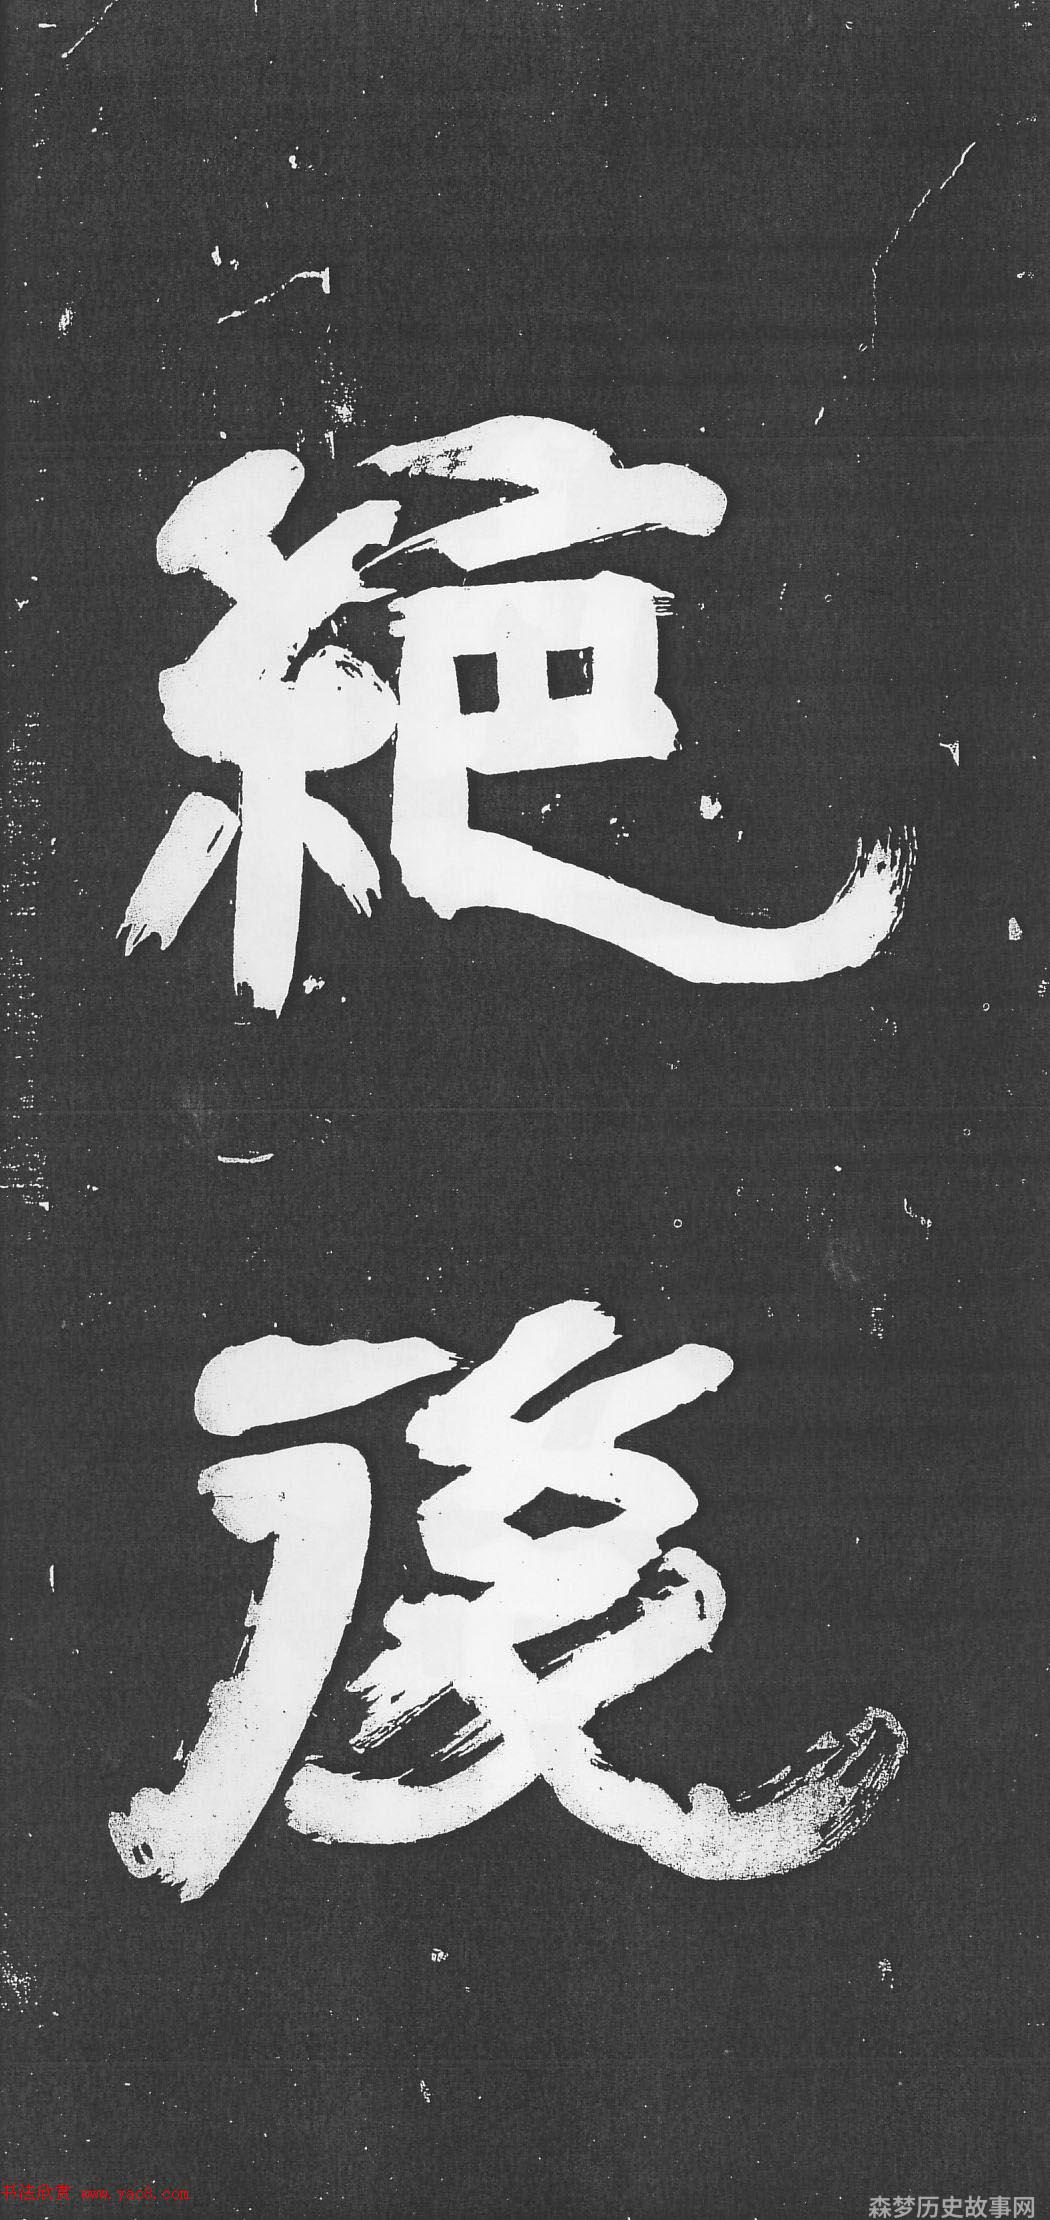 絕
後
书法欣赏 www.yac8.com
森梦历史故事网